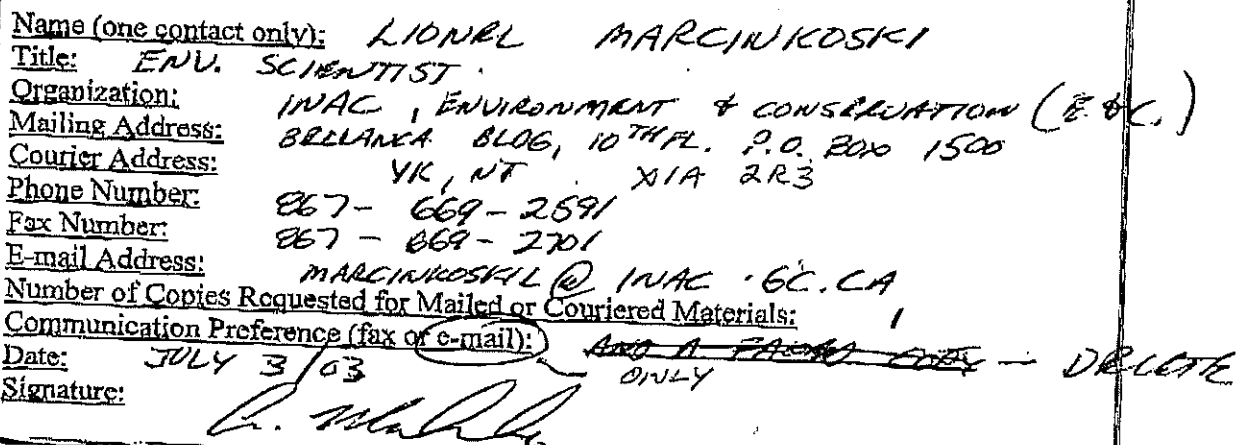 Name (one contact only): LIONEL MARCINKOSKI
Title: ENV. SCIENTIST.
Organization: INAC, ENVIRONMENT & CONSERVATION (E & C.)
Mailing Address: BELLANCA BLDG, 10TH FL. P.O. BOX 1500
Courier Address: YK, NT X1A 2R3
Phone Number: 867-669-2591
Fax Number: 867-669-2701
E-mail Address: MARCINKOSKIL @ INAC.GC.CA
Number of Copies Requested for Mailed or Couriered Materials: 1
Communication Preference (fax or e-mail): AND A COPY - DELETE
Date: JULY 3/03 ONLY
Signature: